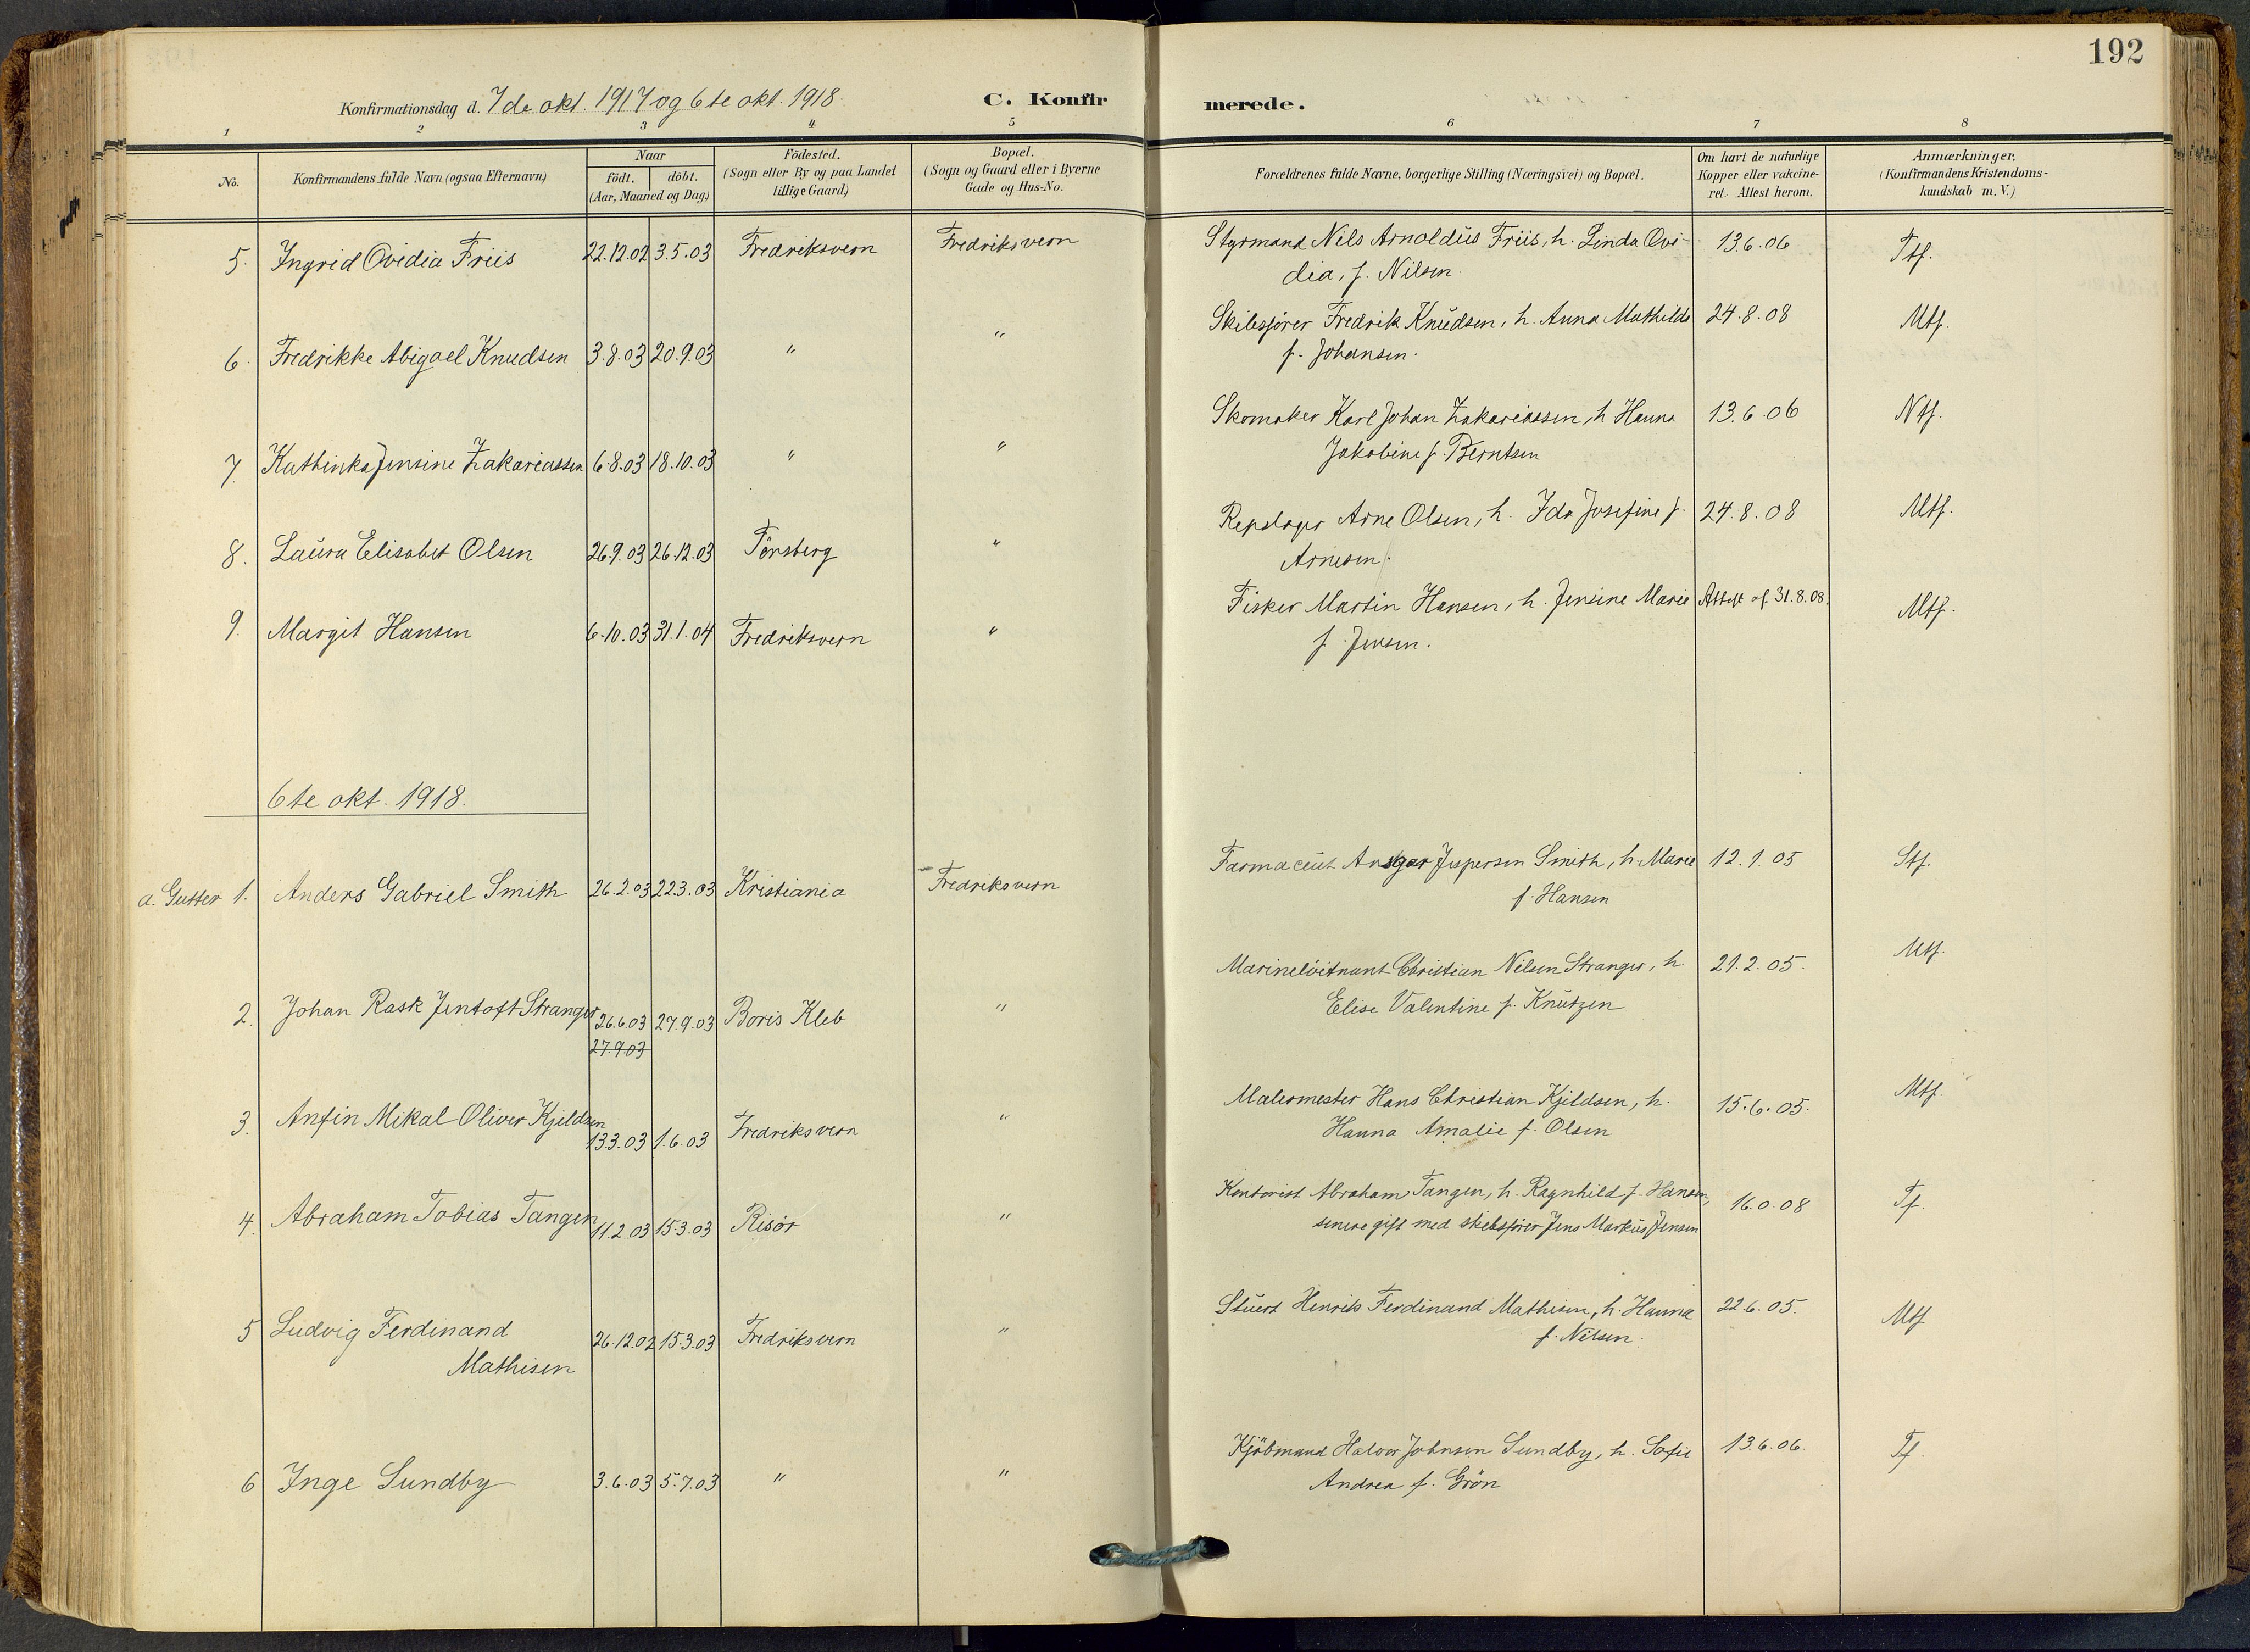 192
Konfirmationsdag d. 7de okt. 1917 og 6te okt. 1918. C. Konfirmerede.
1 2 3 4 5 6 7 8
No. Konfirmandens fulde Navn (ogsaa Efternavn) Naar födt. döbt. (Aar, Maaned og Dag.) Födested. (Sogn eller By og paa Landet tillige Gaard) Bopæl. (Sogn og Gaard eller i Byerne Gade og Hus-No. Forældrenes fulde Navne, borgerlige Stilling (Næringsvei) og Bopæl. Om havt de naturlige Kopper eller vakcineret. Attest herom. Anmærkninger. (Konfirmandens Kristendomskundskab m. V.)
5. Ingrid Ovidia Friis 22.12.02 3.5.03 Fredriksvern Fredriksvern Styrmand Nils Arnoldus Friis, h. Linda Ovi- 13.6.06 Ttf.
dia, f. Nilsen.
6. Fredrikke Abigael Knudsen 3.8.03 20.9.03 " " Skibsfører Fredrik Knudsen, h. Anna Mathilde 24.8.08 Mtf.
f. Johansen.
7. Kathinka Jensine Zakariassen 6.8.03 18.10.03 " " Skomaker Karl Johan Zakariassen, h Hanna 13.6.06 Ntf.
Jakobine f. Berntsen
8. Laura Elisabet Olsen 26.9.03 26.12.03 Tönsberg " Repslager Arne Olsen, h. Ida Josefine f. 24.8.08 Mtf.
Arnesen.
9. Margit Hansen 6.10.03 31.1.04 Fredriksvern " Fisker Martin Hansen, h. Jensine Marie Attest af. 31.8.08. Mtf.
f. Jensen.
6te okt. 1918.
a. Gutter 1. Anders Gabriel Smith 26.2.03 22.3.03 Kristiania Fredriksvern Farmaceut Ansgar Jespersen Smith, h. Marie 12.1.05 Stf.
f. Hansen
2. Johan Rask Jentoft Stranger 26.6.03 27.9.03 Boris Kleb " Marineløitnant Christian Nilsen Stranger, h. 21.2.05. Mtf.
27.9.03 Elise Valentine f. Knutzen
3. Anfin Mikal Oliver Kjeldsen 13.3.03 1.6.03 Fredriksvern " Malermester Hans Christian Kjeldsen, h. 15.6.05. Mtf.
Hanna Amalie f. Olsen
4. Abraham Tobias Tangen 11.2.03 15.3.03 Risör " Kontorist Abraham Tangen, h. Ragnhild f. Hansen, 16.0.08 Tf.
senere gift med skibsfører Jens Markus Jensen
5 Ludvig Ferdinand 26.12.02 15.3.03 Fredriksvern " Stuert Henrik Ferdinand Mathisen, h. Hanna 22.6.05. Mtf
Mathisen f. Nilsen.
6 Inge Sundby 3.6.03 5.7.03 " " Kjöbmand Halvor Johnsen Sundby, h. Sofie 13.6.06. Tf.
Andrea f. Grön